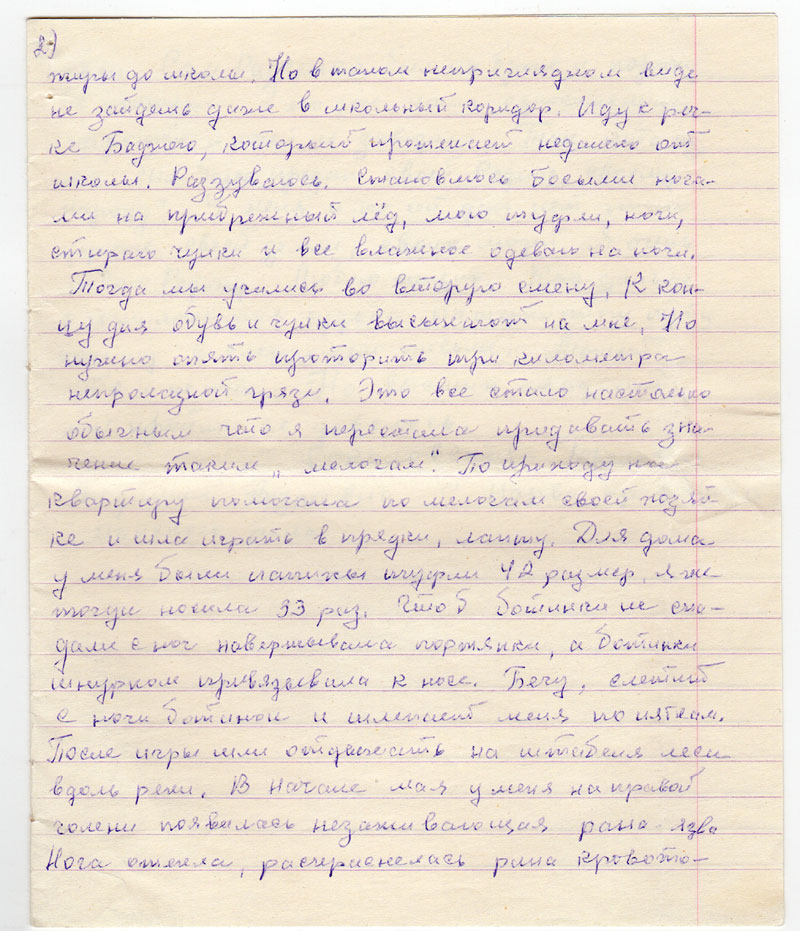 2)
жиры до школы. Но в таком неприглядном виде
не зайдешь даже в школьный коридор. Иду к реч-
ке Баджего, который протекает недалеко от
школы. Раззуваюсь. Становлюсь босыми нога-
ми на прибрежный лёд, мою туфли, ноги,
стираю чулки и все влажное одеваю на ноги.
Тогда мы учились во вторую смену. К кон-
цу дня обувь и чулки высыхают на мне. Но
нужно опять проторить три километра
непролазной грязи. Это все стало настолько
обычным что я перестала придавать зна-
чение таким „мелочам". По приходу на
квартиру помогала по мелочам своей хозяй-
ке и шла играть в прядки, лапту. Для дома
у меня были папины туфли 42 размер, я же
тогда носила 33 раз. Чтоб ботинки не спа-
дали с ног навертывала портянки, а ботинки
шнурком привязывала к ноге. Бегу, слетит
с ноги ботинок и шлепает меня по пяткам.
После игры шли отдыхать на штабеля леса
вдоль реки. В начале мая у меня на правой
голени появилась незаживающая рана-язва
Нога отекла, расчераснелась рана кровото-